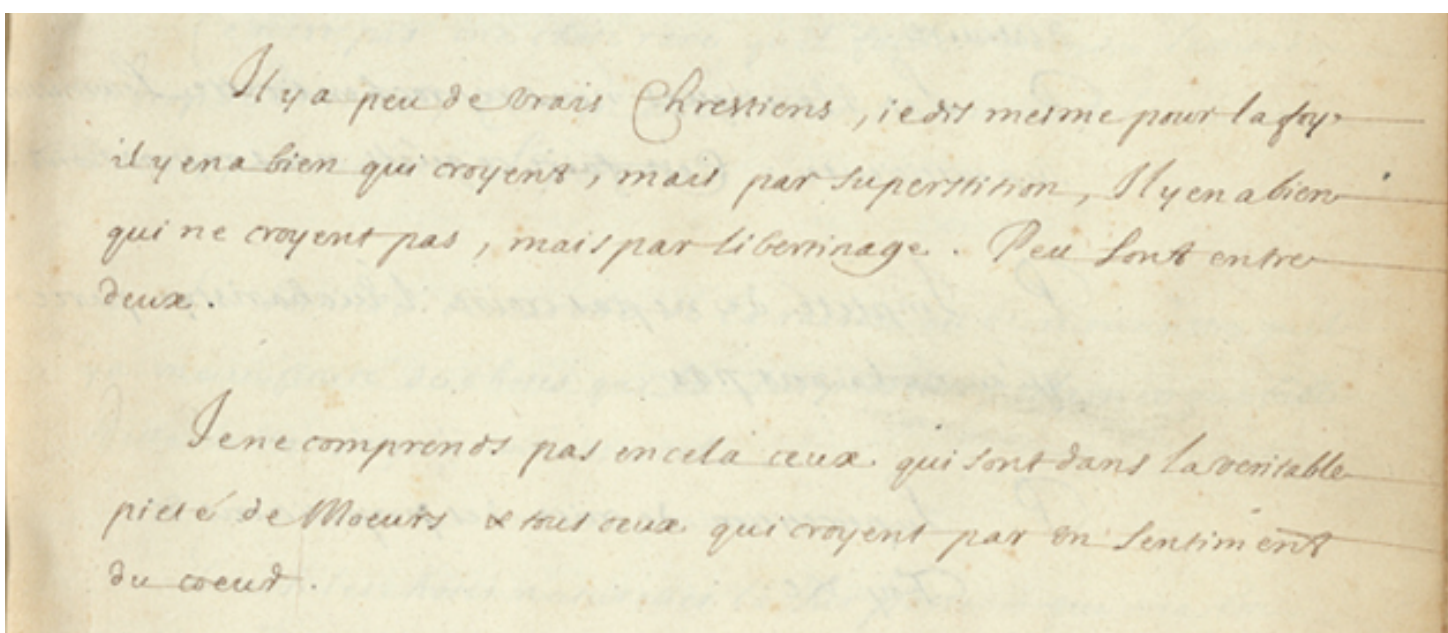 Il y a peu de vrais Chrestiens, ie dis mesme pour la foy
il y en a bien qui croyent, mais par superstition, Il y en a bien
qui ne croyent pas, mais par libertinage. Peu sont entre
deux.
Je ne comprends pas en cela ceux qui sont dans la veritable
pieté de Moeurs & tous ceux qui croyent par un sentiment
du coeur.